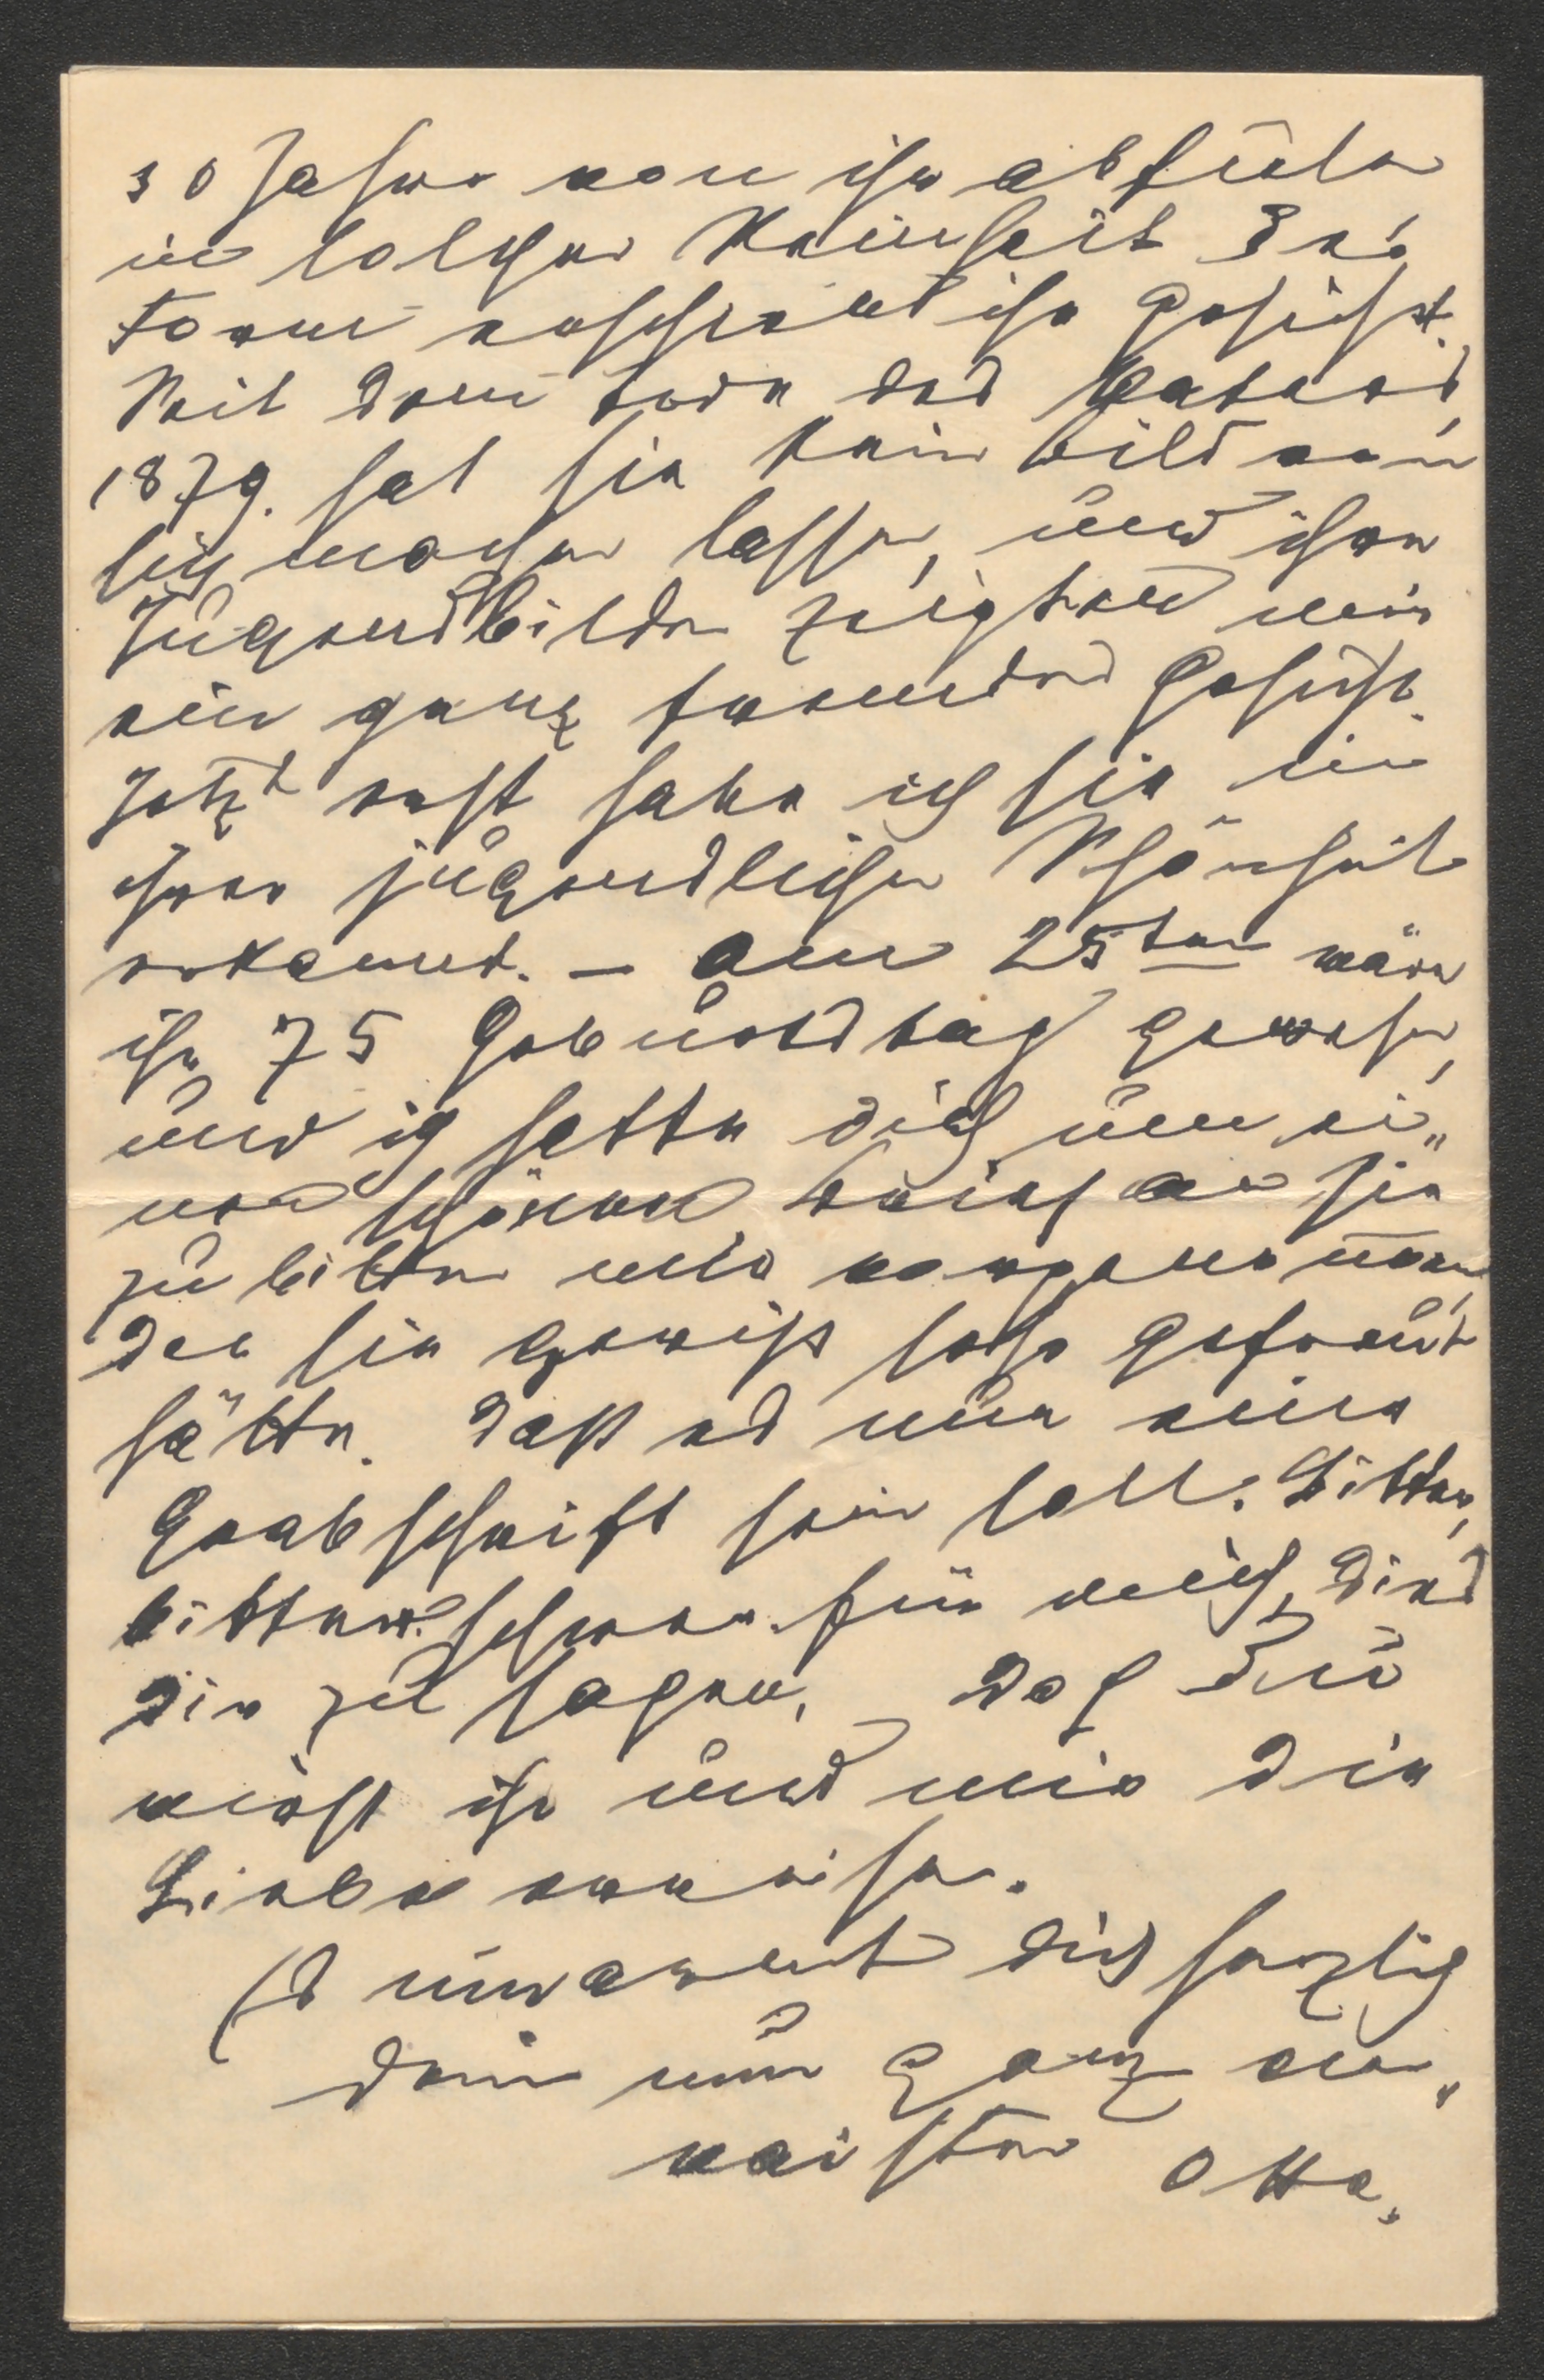 30 Jahre von ihr abfielen
in solcher Reinheit der
Formen erschien ihr Gesicht.
Seit dem Tode des Vaters,
1879. hat sie kein Bild von
sich machen lassen, und ihre
Jugendbilder zeigten mir
ein ganz fremdes Gesicht.
Jetzt erst habe ich sie in
ihrer jugendlichen Schönheit
erkannt. – Am 25ten wäre
ihr 75 Geburtstag gewesen,
und ich hatte dich um ei„
nen schönen Brief an sie
zu bitten mir vorgenommen,
der sie gewiss sehr gefreut
hätte. Dass es nun eine
Grabschrift sein soll. Bitter,
bitter schwer für mich, dies
dir zu sagen, der Du
wirst ihr und mir die
Liebe erweisen.
Es umarmt dich herzlich
dein nun ganz ver„
waister Otto.